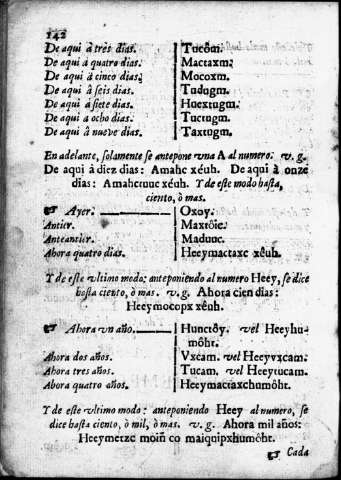 142
De aqui à tres dias. Tucôm.
De aqui à quatro dias. Mactaxm.
De aqui à cinco dias. Mocoxm.
De aqui â seis dias. Tudugm.
De aqui â siete dias. Huextugm.
De aqui a ocho dias. Tuctugm.
De aqui â nueve dias. Taxtugm.
En adelante, solamente se antepone vna A al numero. v. g.
De aqui à diez dias: Amahc xéuh. De aqui à onze
dias: Amahctuuc xéuh. Y de este modo hasta,
ciento, ò mas.
☞ Ayer. Oxoy.
Antier. Maxtôic.
Anteantier. Maduuc.
Ahora quatro dias. Heeymactaxc xêuh.
Y de este vltimo modo: anteponiendo al numero Heey, se dice
hasta ciento, ò mas. v. g. Ahora cien dias:
Heeymocopx xêuh.
☞ Ahora vn año. Hunctôy. vel Heeyhu-
môht.
Ahora dos años. Vxcam. vel Heeyvxcam.
Ahora tres años. Tucam. vel Heeytucam.
Ahora quatro años. Heeymactaxchumôht.
Y de este vltimo modo: anteponiendo Heey al numero, se
dice hasta ciento, ò mil, ò mas. v. g. Ahora mil años:
Heeymetzc moiñ co maiquipxhumôht.
☞ Cada